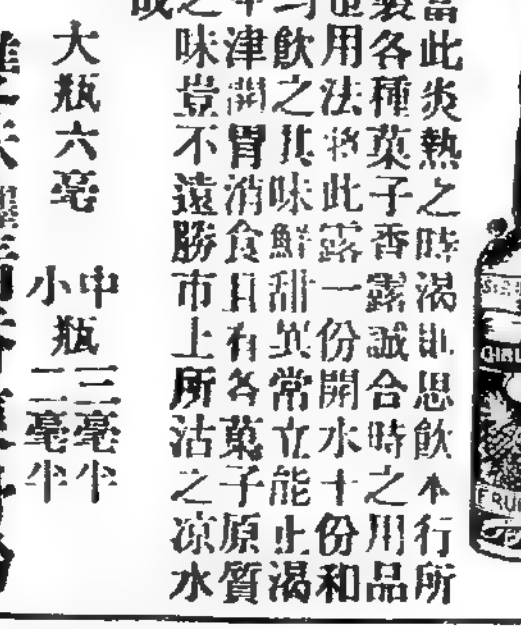 當此炎熱之時渴則思飲本行所
製各種菓子香露誠合時之用品
也用法將此露一份開水十份和
勻飲之其味鮮甜異常立能止渴
津開胃消食且有各菓子原質
之味豈不遠勝市上所沽之凉水
大瓶六毫
中瓶三毫半
小瓶二毫半
GIRL
FRU